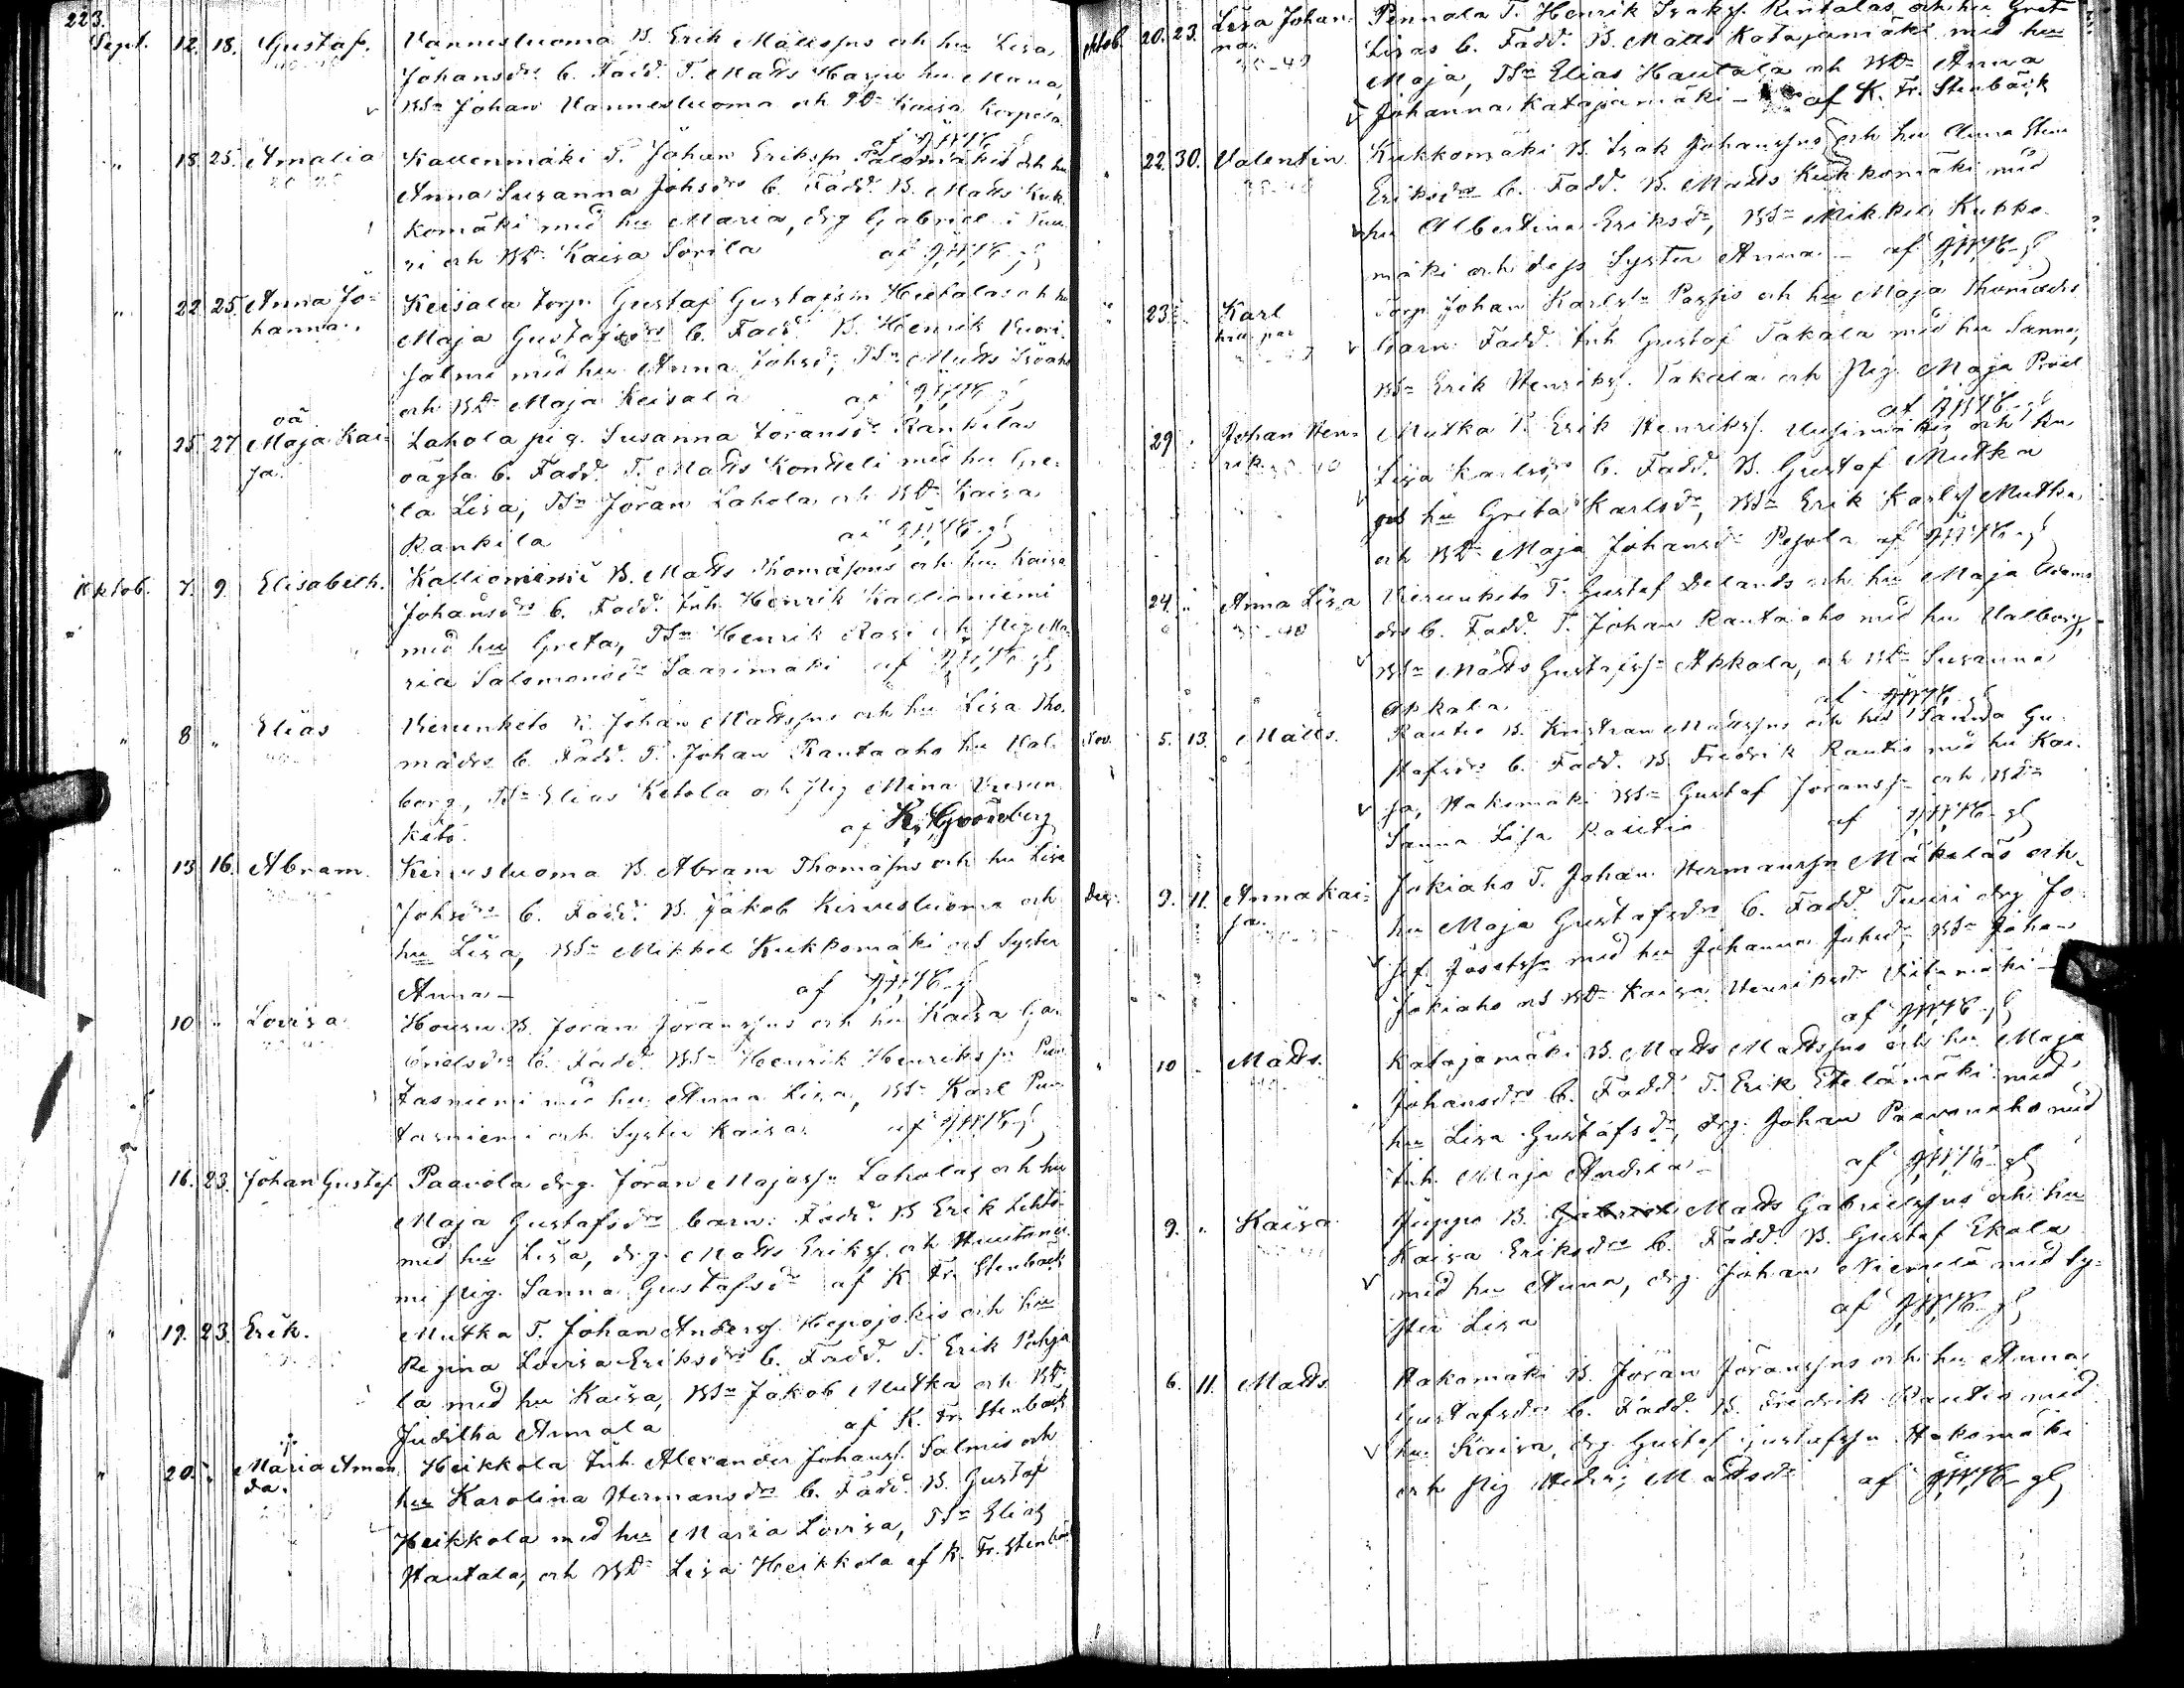 223.
Sept. 12. 18. Gustaf. Vannesluoma B. Erik Mattssons och hu Lisa
Johansdrs b. Fadd. T. Matts Harju hu Maria,
BSn Johan Vannesluoma och Kaisa Korpela
" 18 25. Amalia Kallenmäki T. Johan Eriksson och hu
Anna Susanna Johsdrs b. Fadd. B. Matts Kuk-
komäki med hu Maria, drg Gabriel i Tuu-
ri och BDr Kaisa Sorila af
" 22 25. Anna Jo- Keisala torp. Gustaf Gustafsson Hietalas och hu
hanna. Maja Gustafsdrs b. Fadd. B. Henrik Vuori-
salmi med hu Anna Johsdr, TSn Matts
och BDr Maja Keisala af
oä
" 25. 27 Maja Kai- Lahola pig. Susanna Jöransdr Rankilas
sa. oägta b. Fadd. T. Matts Kontteli med hu Gre-
ta Lisa, TSn Jöran Lahola och BDr Kaisa
Rankila af
Oktob. 7. 9. Elisabeth. Kallioniemi B. Matts Thomassons och hu Kaisa
Johansdrs b. Fadd. Inh. Henrik Kallioniemi
med hu Greta, TSn Henrik Rasi och pig Ma-
ria Salomonsdr Saarimäki af
" 8 " Elias Vierunketo B. Johan Mattssons och hu Lisa Tho-
madrs b. Fadd. T. Johan Rautaaho hu Val-
borg, TSn Elias Ketola och pig Mina Vierun-
keto. af K. Grönberg
" 13 16. Abram. Kirvesluoma B. Abram Thomassons och hu Lisa
Johsdrs b. Fadd. B. Jakob Kirvesluoma och
hu Lisa, BSn Mikkel Kukkomäki och Syster
Anna - af
10 " Lovisa Housu B. Jöran Jöranssons och hu Kaisa Ga-
brielsdrs b. Fadd. BSn Henrik Henriksson Pun-
tasniemi med hu Anna Lisa, BSn Karl Pun-
tasniemi och Syster Kaisa. af
16. 23. Johan Gustaf Paavola drg. Jöran Majasson Laholas och hu
Maja Gustafsdrs barn: Fadd. B Erik Lehto-
med hu Lisa, drg. Matts Eriks. och
mi pig. Sanna Gustafsdr af K. Fr. Stenbäck
" 19. 23. Erik. Mutka T. Johan Anderss. Hepojokis och hu
Regina Lovisa Eriksdrs b. Fadd. T. Erik Pohja-
la med hu Kaisa, BSn Jakob Mutka och BDr
Juditha Annala af K. Fr. Stenbäck
" 20. " Maria Aman- Heikkola Inh. Alexander Johanss. Salmis och
da. hu Karolina Hermansdrs b. Fadd. B. Gustaf
Heikkola med hu Maria Lovisa, TSn Elias
Hautala, och BDr Lisa Heikkola af K. Fr. Stenbäck
Oktob. 20. 23. Lisa Johan- Pennala T. Henrik Isakss. Rintalas och hu Greta
na. Lisas b. Fadd. B. Matts Katajamäki med hu
Maja, TSn Elias Hautala och BDr Anna
Johanna Katajamäki - af K. Fr. Stenbäck
" 22. 30. Valentin. Kukkomäki B. Isak Johanssons och hu Anna
Eriksdrs b. Fadd. B. Matts Kukkomäki med
hu Albertina Eriksdr, BSn Mikkel Kukko-
mäki och dess Syster Anna - af
" 23. " Karl Torp. Johan Karlsson och hu Maja Thomædrs
barn. Fadd. Inh Gustaf Takala med hu Sanna,
BSn Erik Henrikss. Takala och pig. Maja
af
29 " Johan Hen- Mutka T. Erik Henrikss. och hu
rik. Lisa Karlsdrs b. Fadd. B. Gustaf Mutka
och hu Greta Karlsdr, BSn Erik Karls Mutka,
och BDr Maja Johansdr Pojola af
24. " Anna Lisa Vierunketo T. Gustaf Delands och hu Maja Adams-
drs b. Fadd. T. Johan Rautaaho med hu Valborg,
BSn Matts Gustafsson Akkola, och BDr Susanna
Akkola af
Nov. 5. 13. Matts. Rautio B. Kristian Mattssons och hu Sanna Gu-
stafsdrs b. Fadd. B. Fredrik Rautio med hu Kai-
sa, Hakomäki BSn Gustaf Jöransson och BDr
Sanna Lisa Rautio af
Dec. 9. 11. Anna Kai- Jokiaho T. Johan Hermansson Mäkeläs och
sa. hu Maja Gustafsdrs b. Fadd. Tuuri drg Jo-
sef Josefsson med hu Johanna Johsdr, BSn Johan
Jokiaho och BDr Kaisa Henriksdr -
af
" 10 " Matts. Katajamäki B. Matts Mattssons och hu Maja
Johansdrs b. Fadd. T. Erik Etelämäki med
hu Lisa Gustafsdr, drg. Johan Paavonaho med
Inh. Maja - af
9. " Kaisa Juppo B. Gabriel Matts Gabrielssons och hu
Kaisa Eriksdrs b. Fadd. B. Gustaf Ekola
med hu Anna, drg. Johan Niemelä med Sy-
ster Lisa af
6. 11. Matts Hakomäki B. Jöran Jöranssons och hu Anna
Gustafsdrs b. Fadd. B. Fredrik Rautio med
hu Kaisa, drg. Gustaf Gustafsson Hakomäki
och pig Hedvi, Mattsdr af